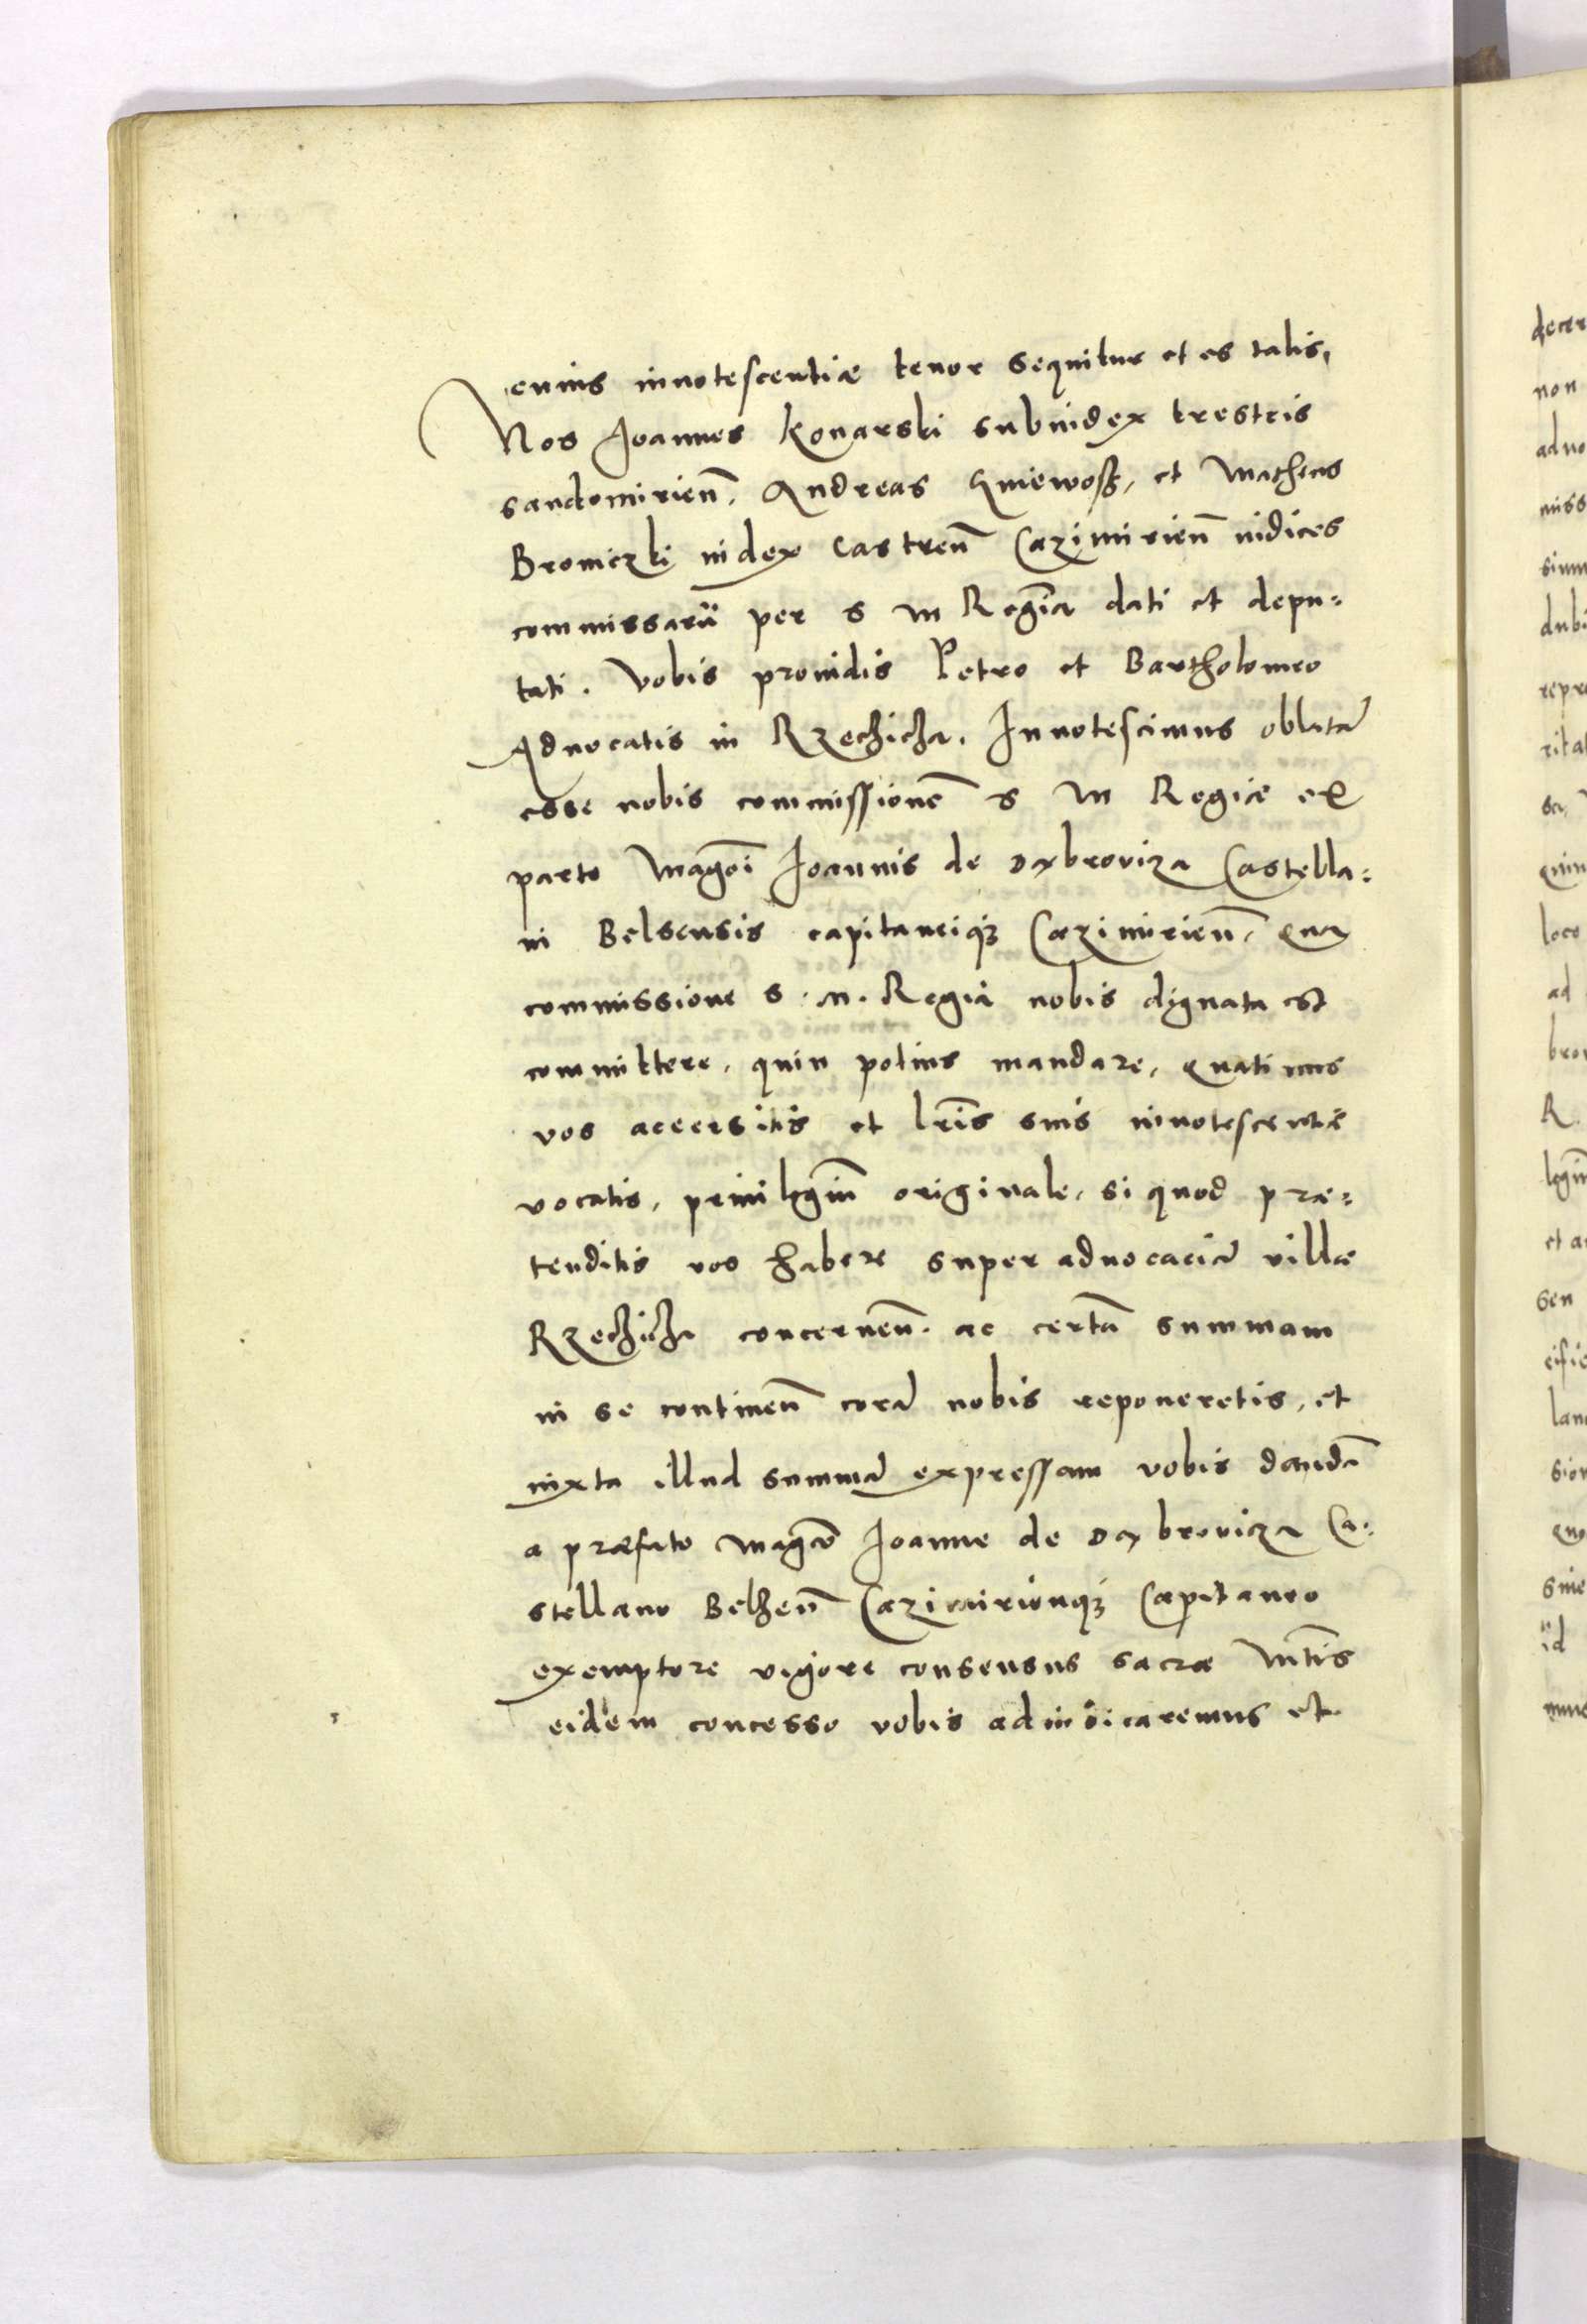 cuius innotescentiæ tenor sequitur et es talis,
Nos Joannes Konarski subiudex trestris
sandomirien̄. Andreas Gniewoß, et Matheus
Broniczki iudex Castren̄ Cazimirien̄ iudices
commissarii per S M Regia dati et depu=
tati. Vobis prouidis Petro et Bartholomeo
Aduocatis in Rzechicza. Innotescimus oblatā
esse nobis commissionē S M Regiæ ex
parte Magc̄i Joannis de Dąbroviza Castella=
ni Belsensis capitaneiq3 Cazimirien̄, qua
commissione S. M. Regia nobis dignata est
committere, quin potius mandare, quatinus
vos accersitis et lr̄is suis innotescentiæ
vocatis, priuilegiū originale, si quod præ=
tenditis vos habere super aduocaciā villæ
Rzechicza concernen̄. ac certā summam
in se continen̄ corā nobis reponeretis, et
iuxta illud summā expressam vobis dandā
a præfato magc̄o Joanne de Dąbrovicza Ca=
stellano Belzen̄ Cazimirienq3 Capitaneo
exemptore vigore consensus sacræ Mt̄is
eidem concesso vobis adiudicaremus et
decer
non
aduo
miss
sium
dubi
repr
rita
sa,
quin
loco
ad
bro
R.
legiū
et a
sen
eifi
lan
sion
quo
sine
id
mus